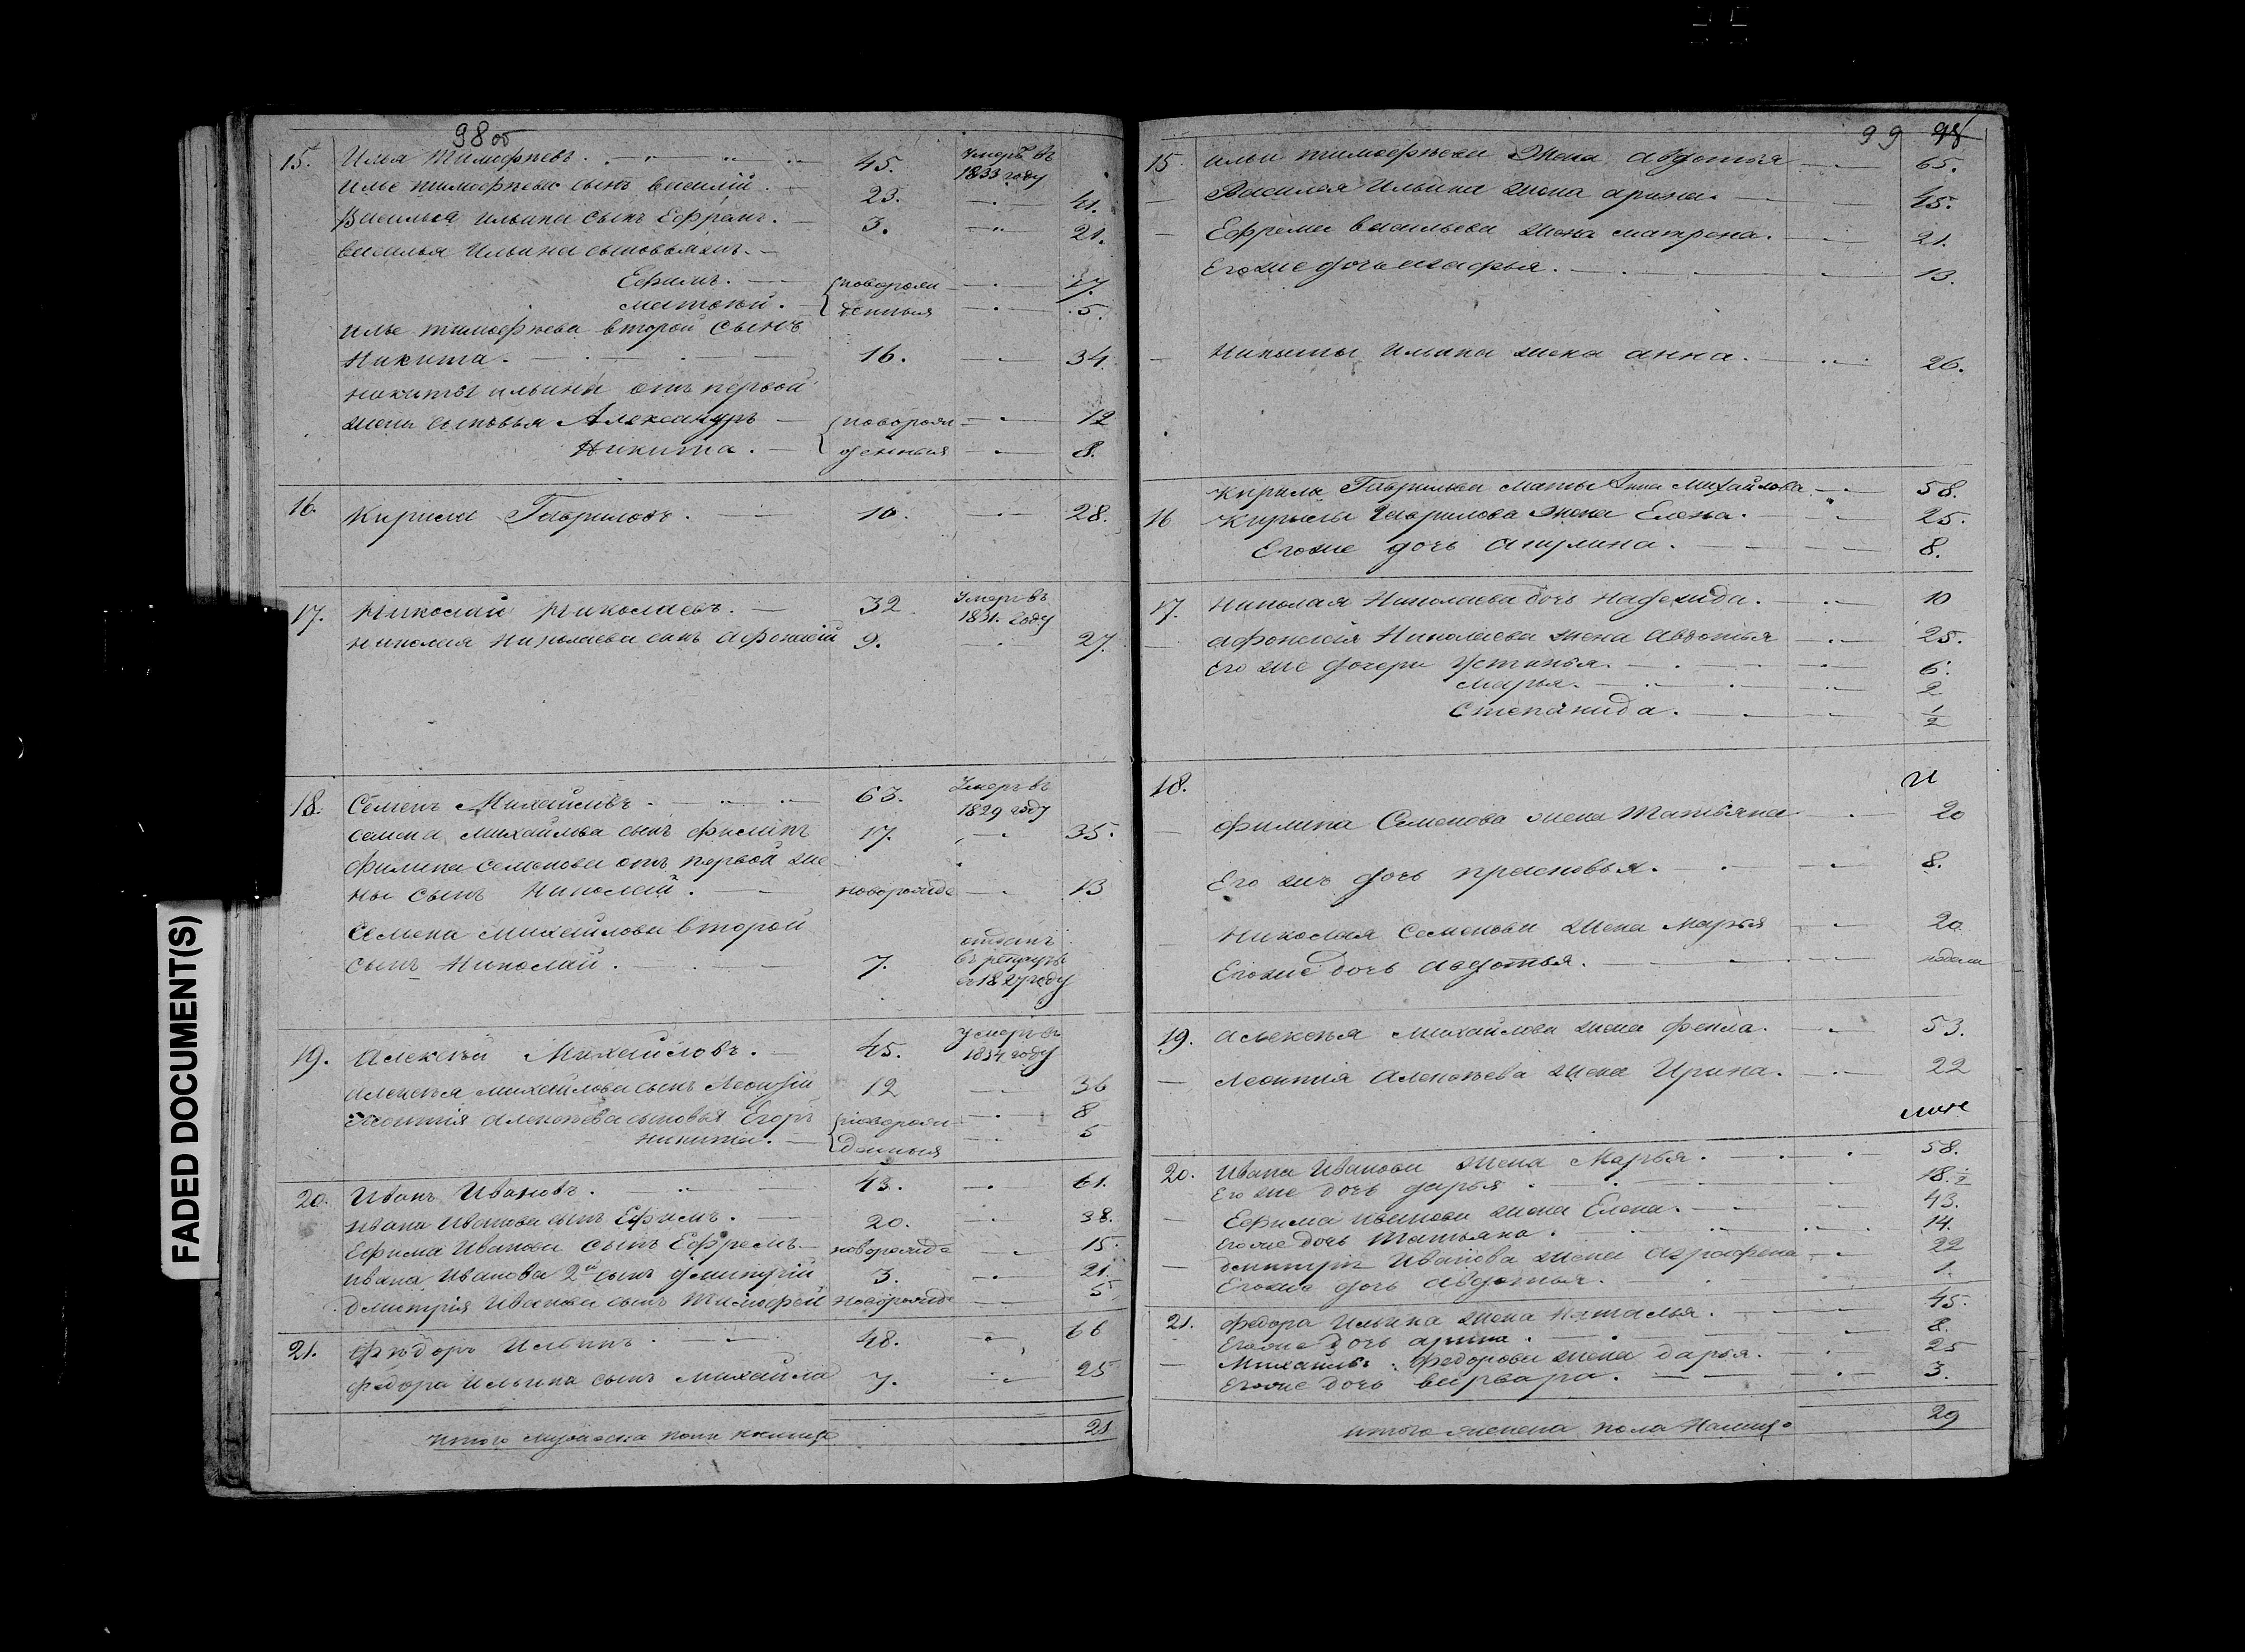 98 об
15. Илья Тимофѣевъ. 45. Умеръ въ 1833 году
Илье Тимофѣева сынъ Василій. 23. 41.
Василья Ильина сынъ Ефремъ. 3. 21.
Василья Ильина сыновья
Ефимъ. новорож 17.
Матвѣй. денныя 5.
Илье Тимофѣева второй сынъ
Никита. 16. 34.
Никиты Ильина отъ первой
жены сыновья Александръ новорож 12
Никита. денныя 8.
16. Кирила Гавриловъ. 10. 28.
17. Николай Николаевъ. 32. Умеръ въ 1831. году
Николая Николаева сынъ Афонасій 9. 27.
18. Семенъ Михайловъ. 63. Умеръ въ 1829 году
Семена Михайлова сынъ Филипъ 17. 35.
Филипа Семенова отъ первой же
ны сынъ Николай. новорожде 13
Семена Михайлова второй
сынъ Николай. 7. отданъ въ рекруты въ 1827 году
19. Алексѣй Михайловъ. 45. Умеръ въ 1834 году
Алексѣя Михайлова сынъ Леонтій 12 36
Леонтія Алексѣева сыновья Егоръ новорож 8
Никита. денныя 5
20. Иванъ Ивановъ. 43. 61.
Ивана Иванова сынъ Ефимъ. 20. 38.
Ефима Иванова сынъ Ефремъ новорожде 15.
Ивана Иванова 2й сынъ Дмитрій 3. 21.
Дмитрія Иванова сынъ Тимофей новорожде 5
21. Фѣдоръ Ильинъ 48. 66
Федора Ильина сынъ Михайла 7. 25
Итого мужеска пола налицо 21
99 98
15. Ильи Тимофѣева жена Авдотья 65.
Василья Ильина жена Арина. 45.
Ефрема Васильева жена Матрена. 21.
Егоже дочь Агафья. 13.
Никиты Ильина жена Анна. 26.
Кирила Гаврилова мать Анна Михайлова 58.
16 Кирилы Гаврилова жена Елена. 25.
Егоже дочь Акулина. 8.
17. Николая Николаева дочь Надежида. 10
Афонасія Николаева жена Авдотья 25.
Его же дочери Устинья. 6.
Марья. 2.
Степанида. 1/2
18.
Филипа Семенова жена Татьяна 20
Его жъ дочь Прасковья. 8.
Николая Семенова жена Марья 20
Егоже дочь Авдотья.
19. Алексѣя Михайлова жена Фекла. 53.
Леонтия Алексѣева жена Ирина. 22
20. Ивана Иванова жена Марья. 58.
Его же дочь Дарья 18.
Ефима Иванова жена Елена. 43.
Егоже дочь Татьяна. 14.
Дмитрія Иванова жена Аграфена 22
Егоже дочь Авдотья. 1.
21. Федора Ильина жена Наталья. 45.
Егоже дочь Арина. 8.
Михайлы Федорова жена Дарья. 25
Егоже дочь Варвара. 3.
Итого женска пола налицо 29
FADED DOCUMENT(S)